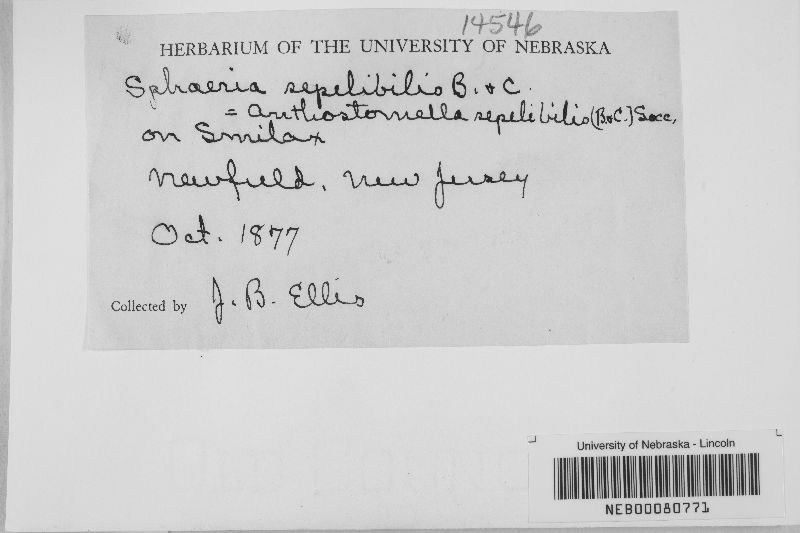 14546
HERBARIUM OF THE UNIVERSITY OF NEBRASKA
Sphaeria sepelibilis B. & C.
= Anthostomella sepelibilis (B&C.) Sacc,
on Smilax
Newfield, New Jersey
Oct. 1877
Collected by J. B. Ellis
University of Nebraska - Lincoln
NEB00080771